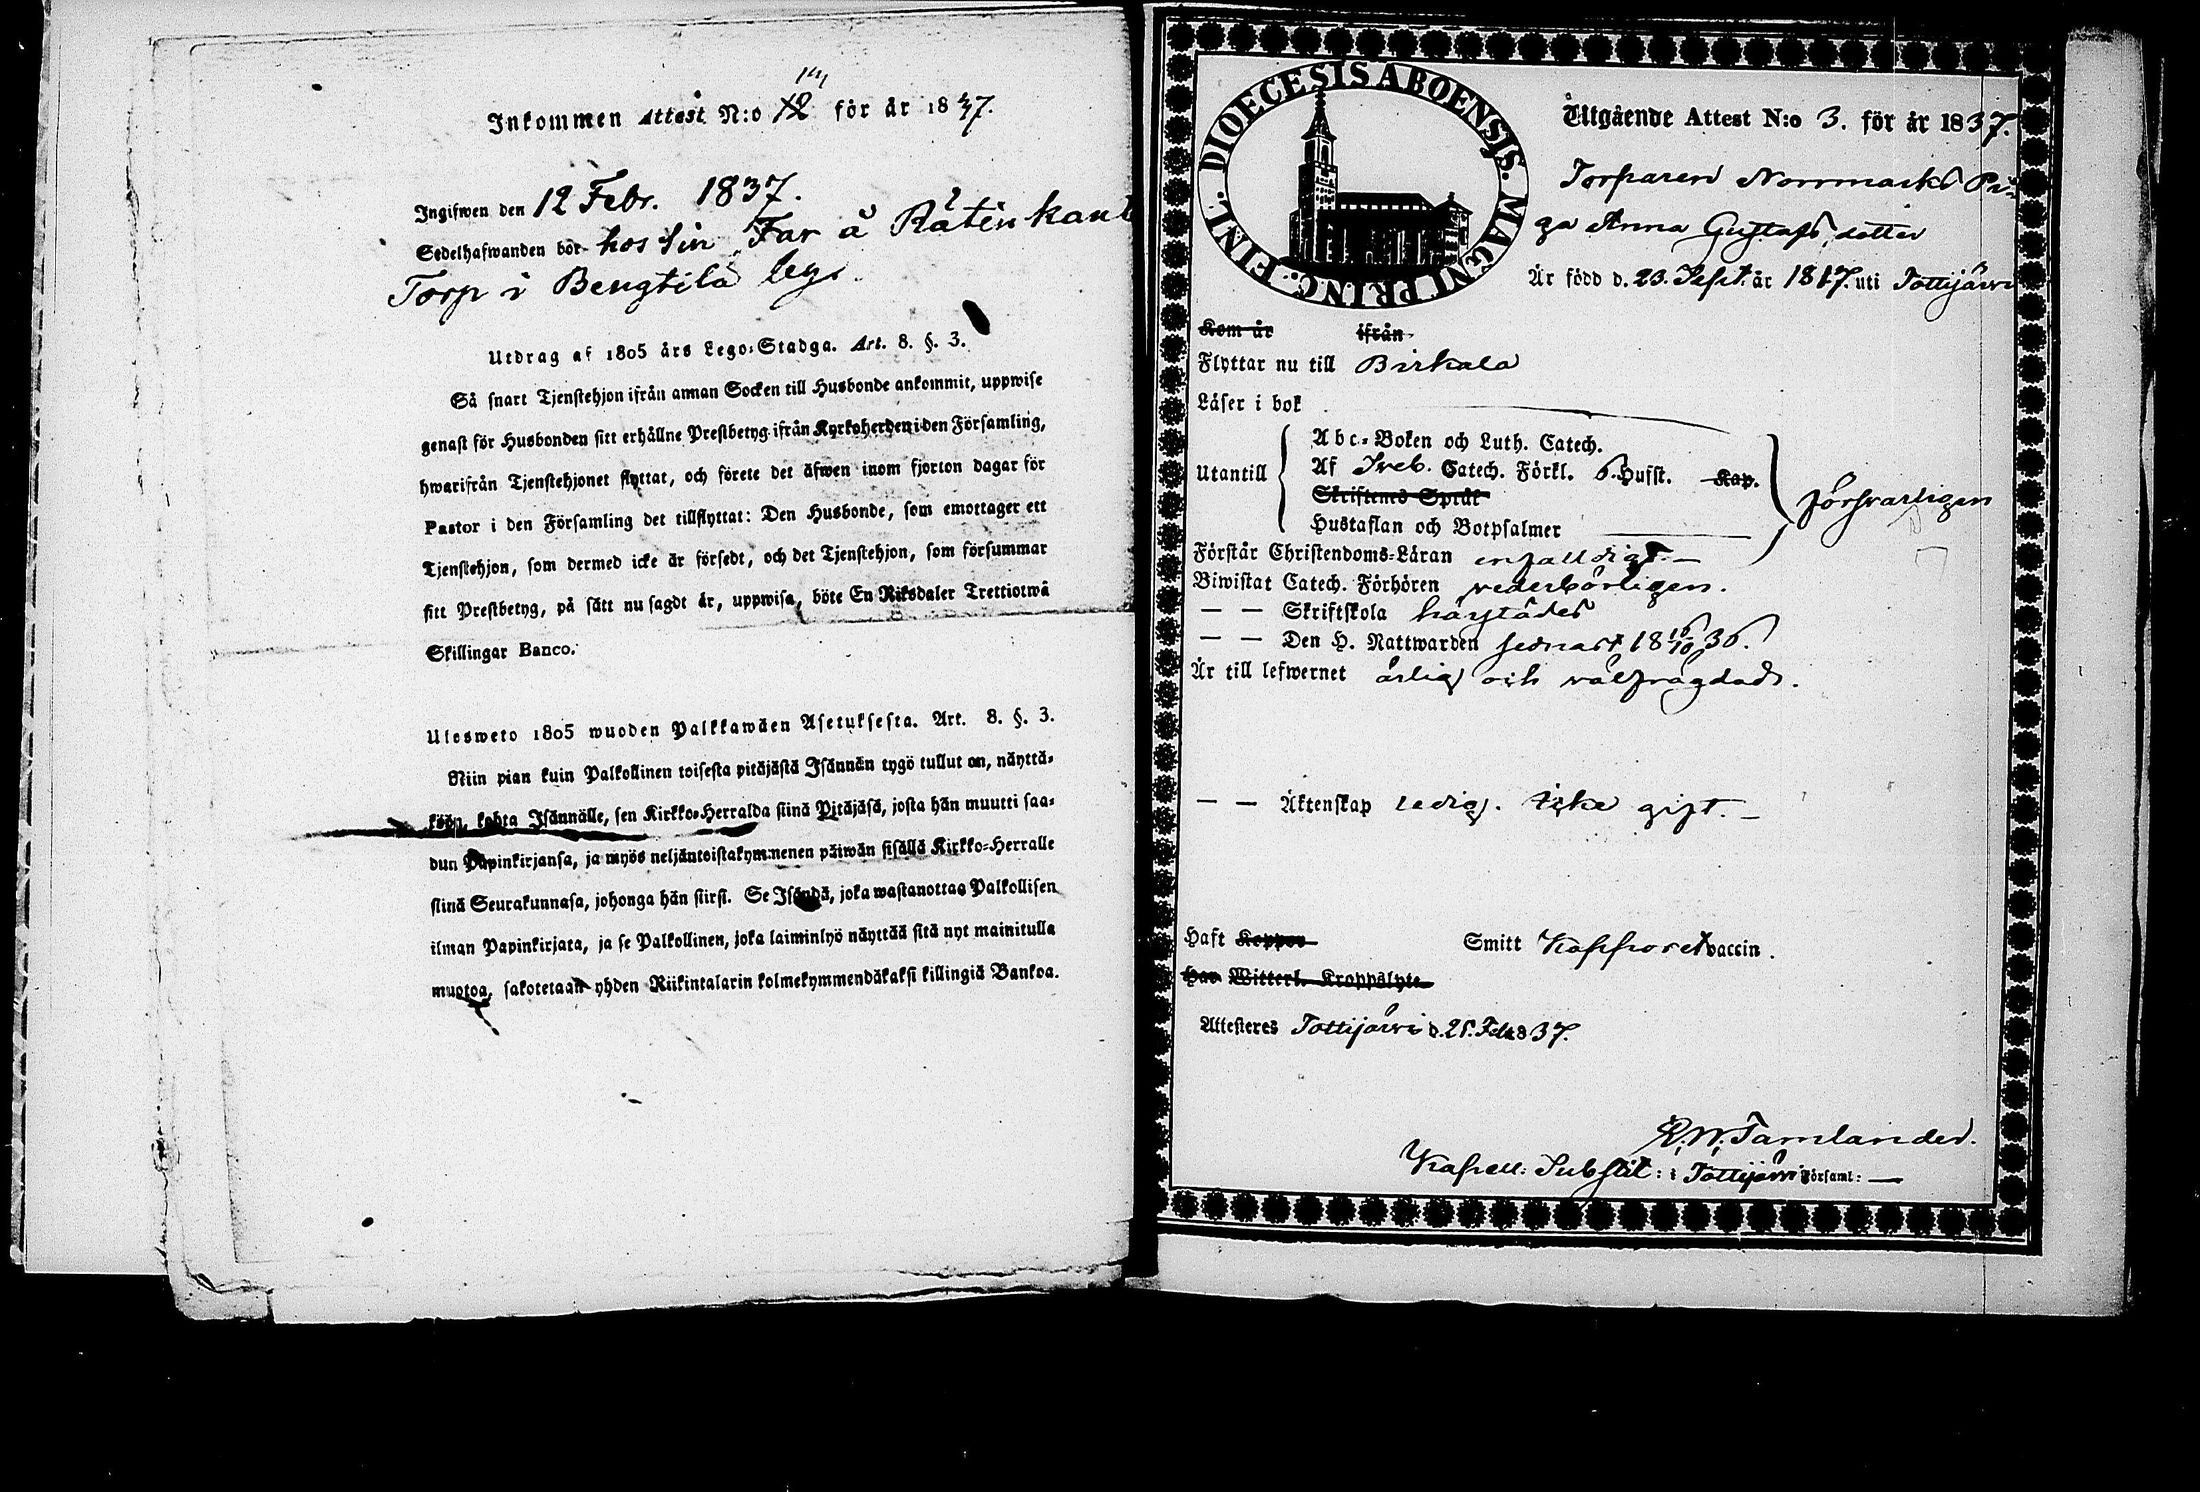 Inkommen Attest N:o 12 14 för år 1837.
Ingifwen den 12 Febr. 1837.
Sedelhafwanden bor hos sin Far å Rätinkant
Torp i Bengtilä bys
Utdrag af 1805 års Lego-Stadga. Art. 8. §. 3.
Så snart Tjenstehjon ifrån annan Socken till Husbonde ankommit, uppwise
genast för Husbonden sitt erhållne Prestbetyg ifrån Kyrkoherden i den Församling,
hwarifrån Tjenstehjonet flyttat, och förete det äfwen inom fjorton dagar för
Pastor i den Församling det tillflyttat: Den Husbonde, som emottager ett
Tjenstehjon, som dermed icke är försedt, och det Tjenstehjon, som försummar
sitt Prestbetyg, på sätt nu sagdt är, uppwisa, böte En Riksdaler Trettiotwå
Skillingar Banco.
Ulosweto 1805 wuoden Palkkawäen Asetuksesta. Art. 8. §. 3.
Niin pian kuin Palkollinen toisesta pitäjästä Isännän tygö tullut on, näyttä-
köön, kohta Isännälle, sen Kirkko-Herralda siinä Pitäjäsä, josta hän muutti saa-
dun Papinkirjansa, ja myös neljäntoistakymmenen päiwän sisällä Kirkko-Herralle
siinä Seurakunnasa, johonga hän siirsi. Se Isändä, joka wastanottaa Palkollisen
ilman Papinkirjata, ja se Palkollinen, joka laiminlyö näyttää sitä nyt mainitulla
muotoa, sakotetaan yhden Riikintalarin kolmekymmendäkaksi killingiä Bankoa.
DIOECESIS ABOENSIS. MAGNI PRINC. FINL.
Utgående Attest N:o 3. för år 1837.
Torparen Norrmarks Pi-
ga Anna Gustafs dotter
Är född d. 23. Sept. år 1817. uti Tottijärvi
Kom år ifrån
Flyttar nu till Birkala
Läser i bok
Utantill
Abc-Boken och Luth. Catech.
Af Sveb. Catech. Förkl. 6. Hufst. Kap.
Skriftenes Språk
Hustaflan och Botpsalmer
försvarligen
Förstår Christendoms-Läran enfalldigt.
Biwistat Catech. Förhören vederbörligen.
— — Skriftskola
— — Den H. Nattwarden sednast 18 16/10 36.
Är till lefwernet ärlig och välfrägdad.
— — Äktenskap ledig. icke gift. —
Haft Koppor Smitt Kopporet vaccin.
Har Witterl. Kroppslyte
Attesteres Tottijärvi d. 21. Feb. 1837.
R. W. Tamlander.
Kapell: Substit: i Tottijärvi Församl: —